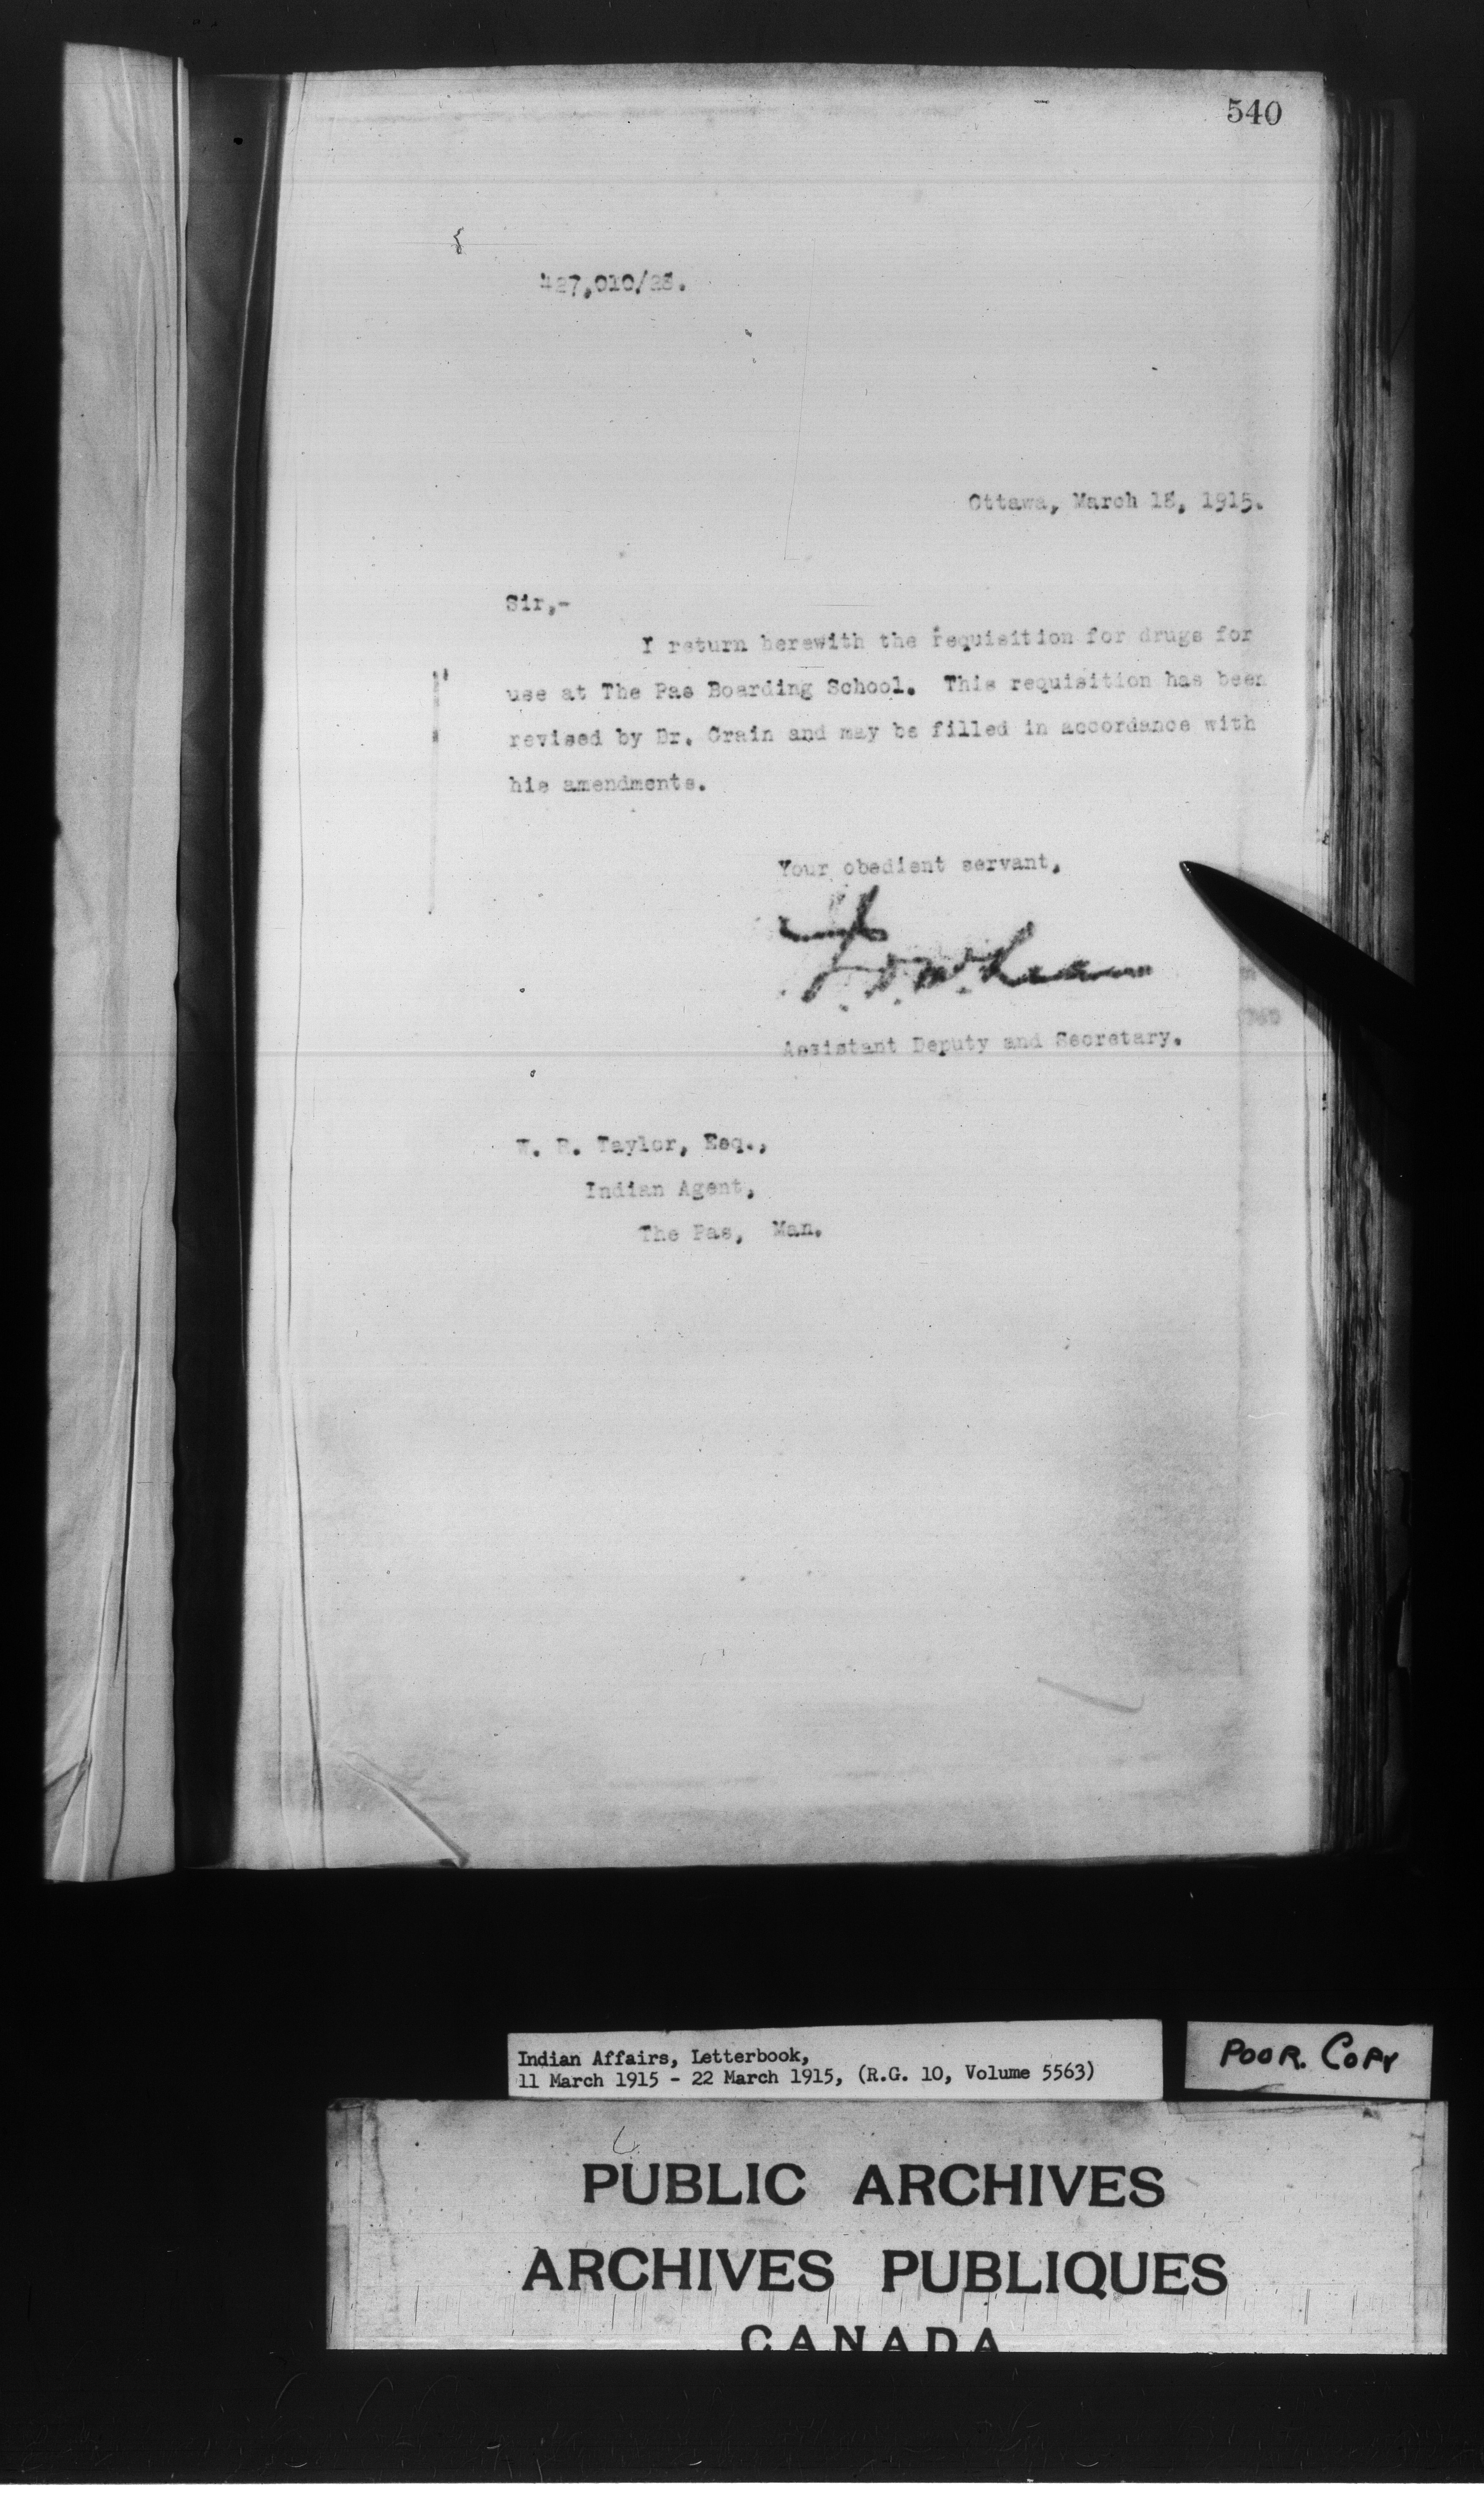 540
427,010/28.
Ottawa, March 18, 1915.
Sir,-
I return herewith the requisition for drugs for
use at The Pas Boarding School. This requisition has been
revised by Dr. Grain and may be filled in accordance with
his amendments.
Your obedient servant,
Assistant Deputy and Secretary.
W. R. Taylor, Esq.,
Indian Agent,
The Pas, Man.
Indian Affairs, Letterbook,
11 March 1915 - 22 March 1915, (R.G. 10, Volume 5563)
POOR. COPY
PUBLIC ARCHIVES
ARCHIVES PUBLIQUES
CANADA